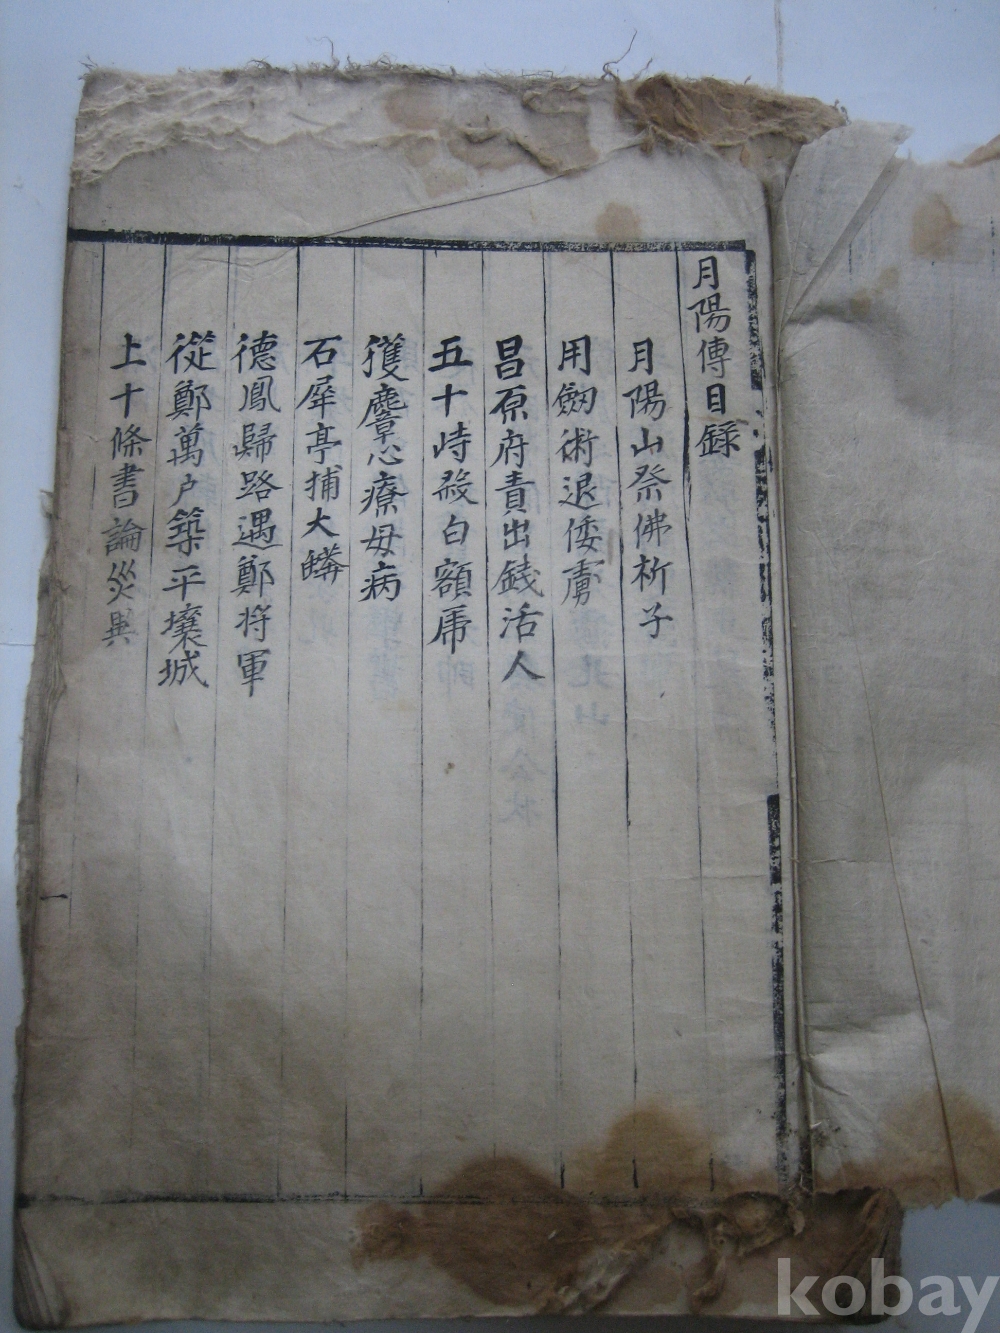 月陽傳目録
月陽山祭佛祈子
用劒術退倭虜
昌原府責出錢活人
五十峙殺白額乕
獲麞心療母病
石犀亭捕大
德鳳歸路遇鄭將軍
從鄭萬户築平壤城
上十條書論災異
kobay